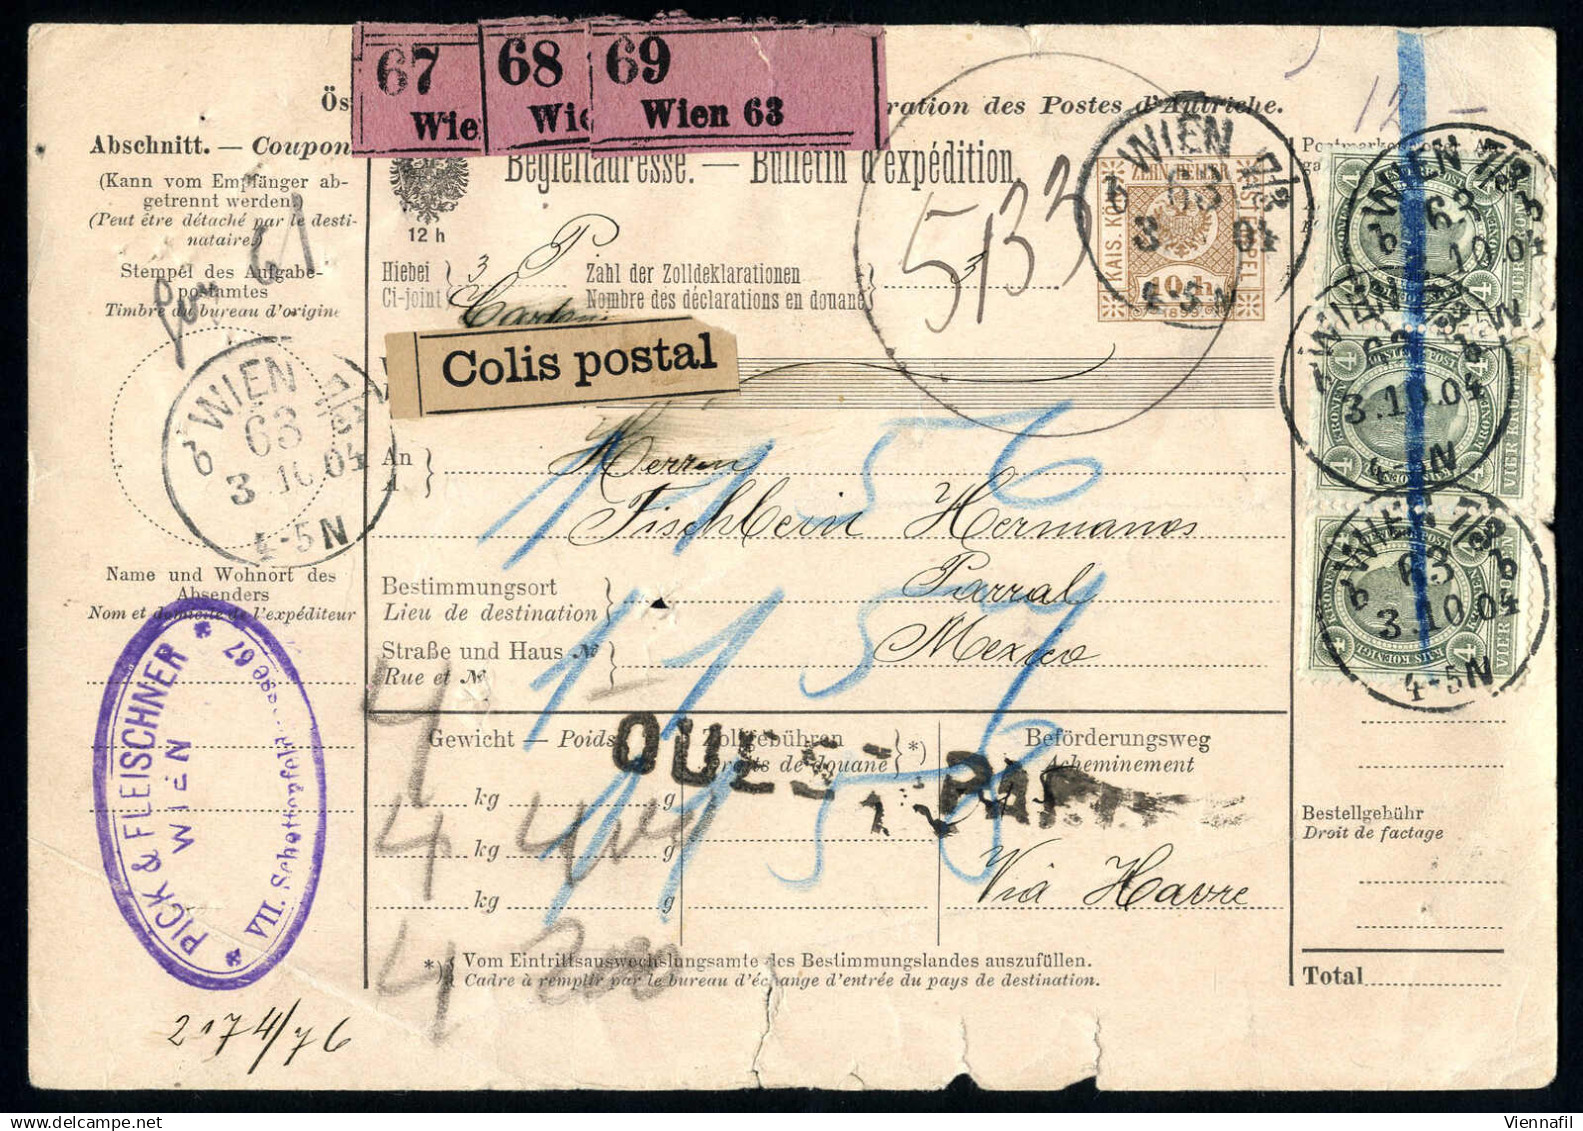 67
68
69
Wie
Wie
Wien 63
Ös
ration des Postes d'Autriche.
12 –
Abschnitt. — Coupon
(Kann vom Empfänger ab-
getrennt werden.)
(Peut être détaché par le desti-
nataire.)
Stempel des Aufgabe-
postamtes
Timbre du bureau d'origine
12 h
Begleitadresse. — Bulletin d'expédition.
Hiebei
Ci-joint
3
Zahl der Zolldeklarationen
Nombre des déclarations en douane
3
5133
ZEHN HELLER
KAIS. KÖN.
STEMPEL
10 h
1899
WIEN 7/3
b 63 b
3 04
4-5N
Colis postal
WIEN 7/3
b 63
3.10.04
4-5N
WIEN 7/3
b 63 b
10.04
WIEN
3.10.04
4-5N
WIEN 7/3
b 63 b
3.10.04
4-5N
4
VIER KRONEN
An
à
Herrn
Fischbein Hermanos
Parral
Mexico
1156
1156
1156
Bestimmungsort
Lieu de destination
Straße und Haus №
Rue et №
Name und Wohnort des
Absenders
Nom et domicile de l'expéditeur
PICK & FLEISCHNER
WIEN
VII. Schottenfeldgasse 67
Gewicht — Poids
kg g
kg g
kg g
4
4
4
Zollgebühren
Droits de douane
*)
OUES-PAR
Beförderungsweg
Acheminement
Via Havre
Bestellgebühr
Droit de factage
Total
*) Vom Eintrittsauswechslungsamte des Bestimmungslandes auszufüllen.
Cadre à remplir par le bureau d'échange d'entrée du pays de destination.
2174/76
Viennafil